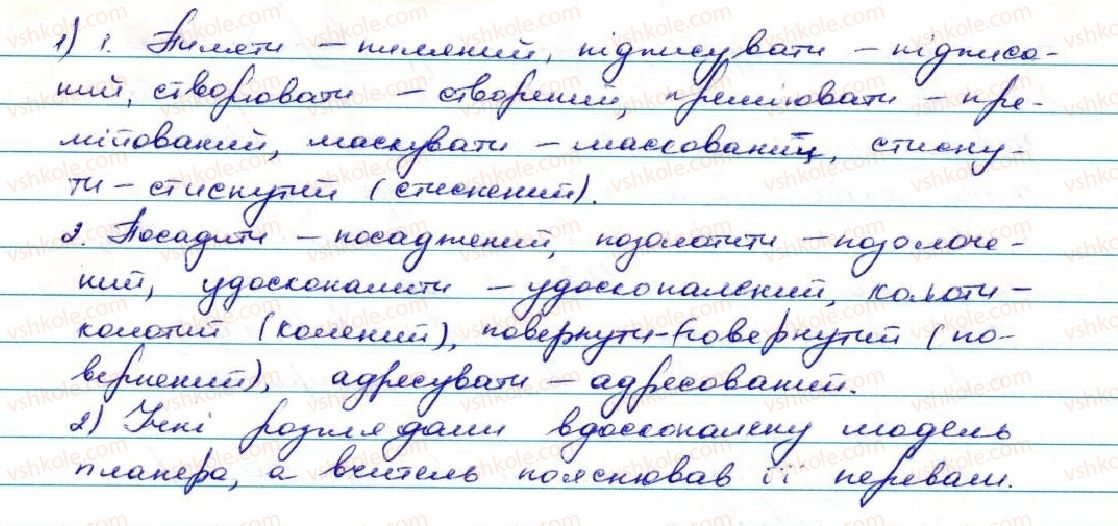 1) 1. Пиляти – пиляний, підписувати – підписа-
ний, створювати – створений, преміювати – пре-
мійований, маскувати – маскований, стисну-
ти – стиснутий (стиснений).
2. Посадити – посаджений, позолотити – позолоче-
ний, удосконалити – удосконалений, колоти –
колотий (колений), повернути – повернутий (по-
вернений), адресувати – адресований.
2) Учні розглядали вдосконалену модель
планера, а вчитель пояснював її переваги.